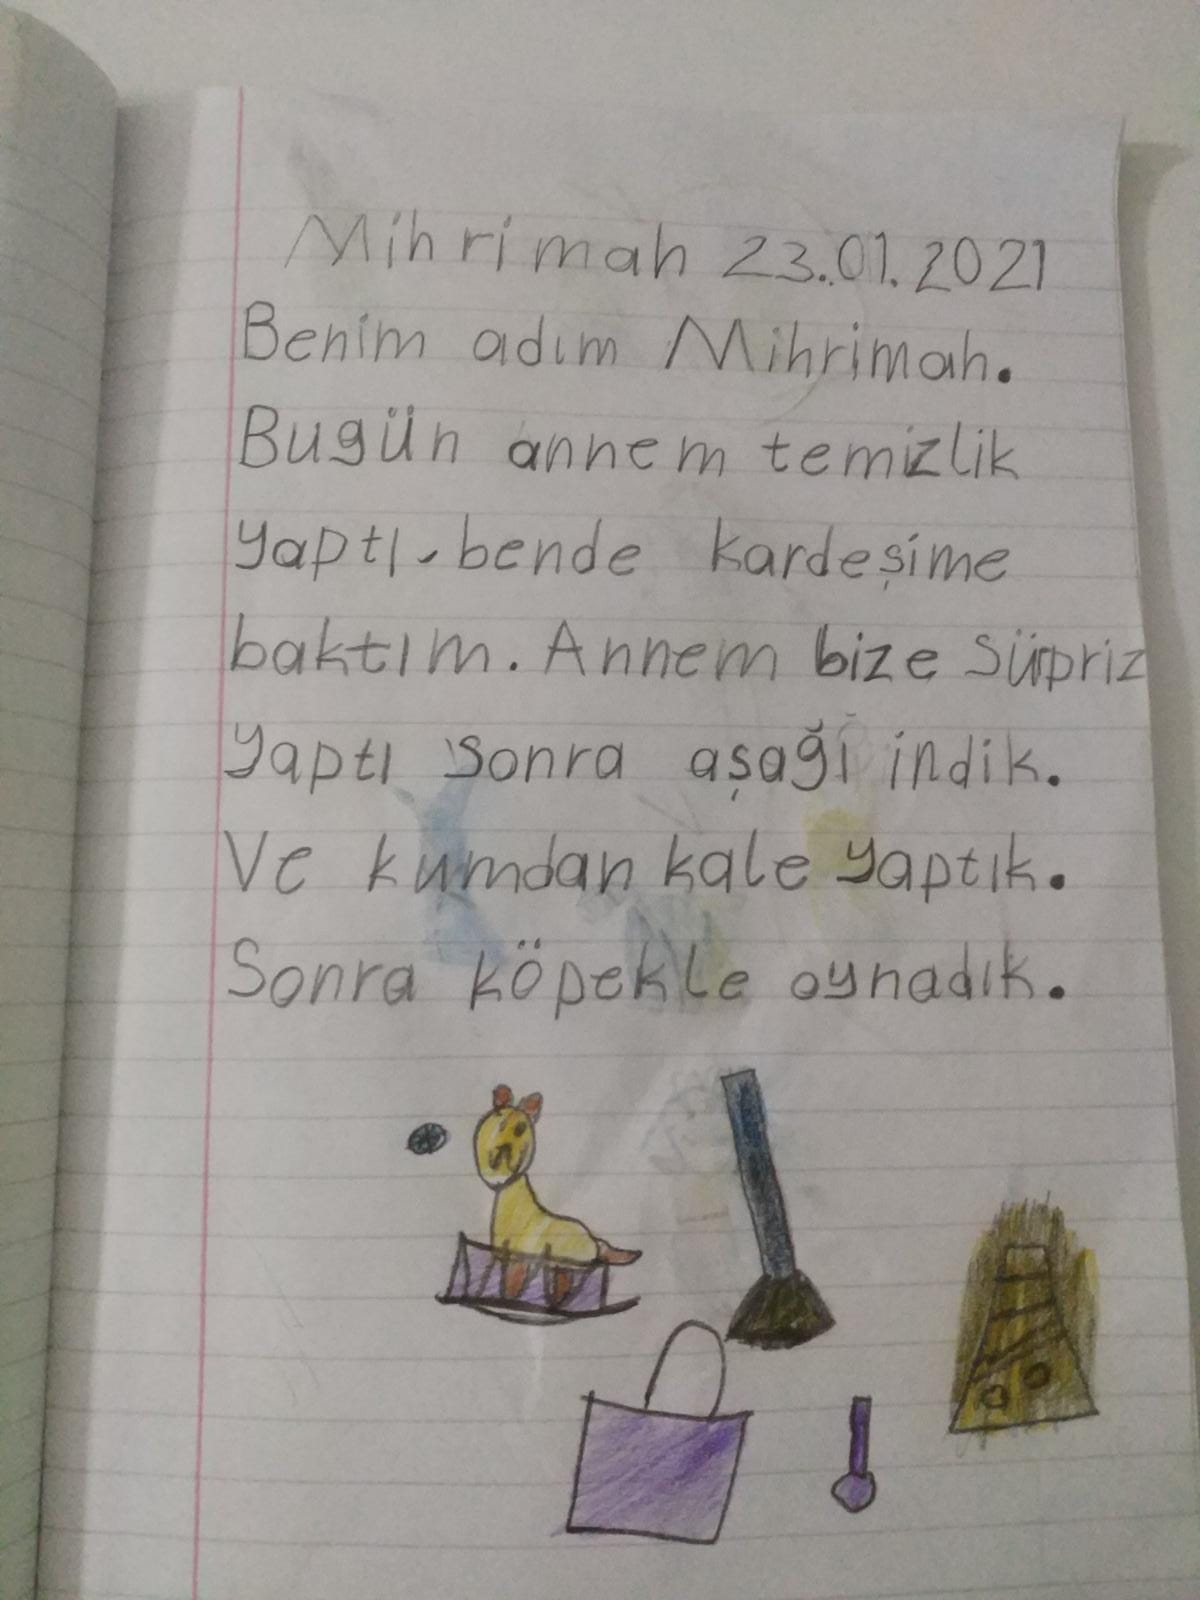 Mihrimah 23.01.2021
Benim adım Mihrimah.
Bugün annem temizlik
yaptı, bende kardeşime
baktım. Annem bize sürpriz
yaptı sonra aşaği indik.
Ve kumdan kale yaptık.
Sonra köpekle oynadık.